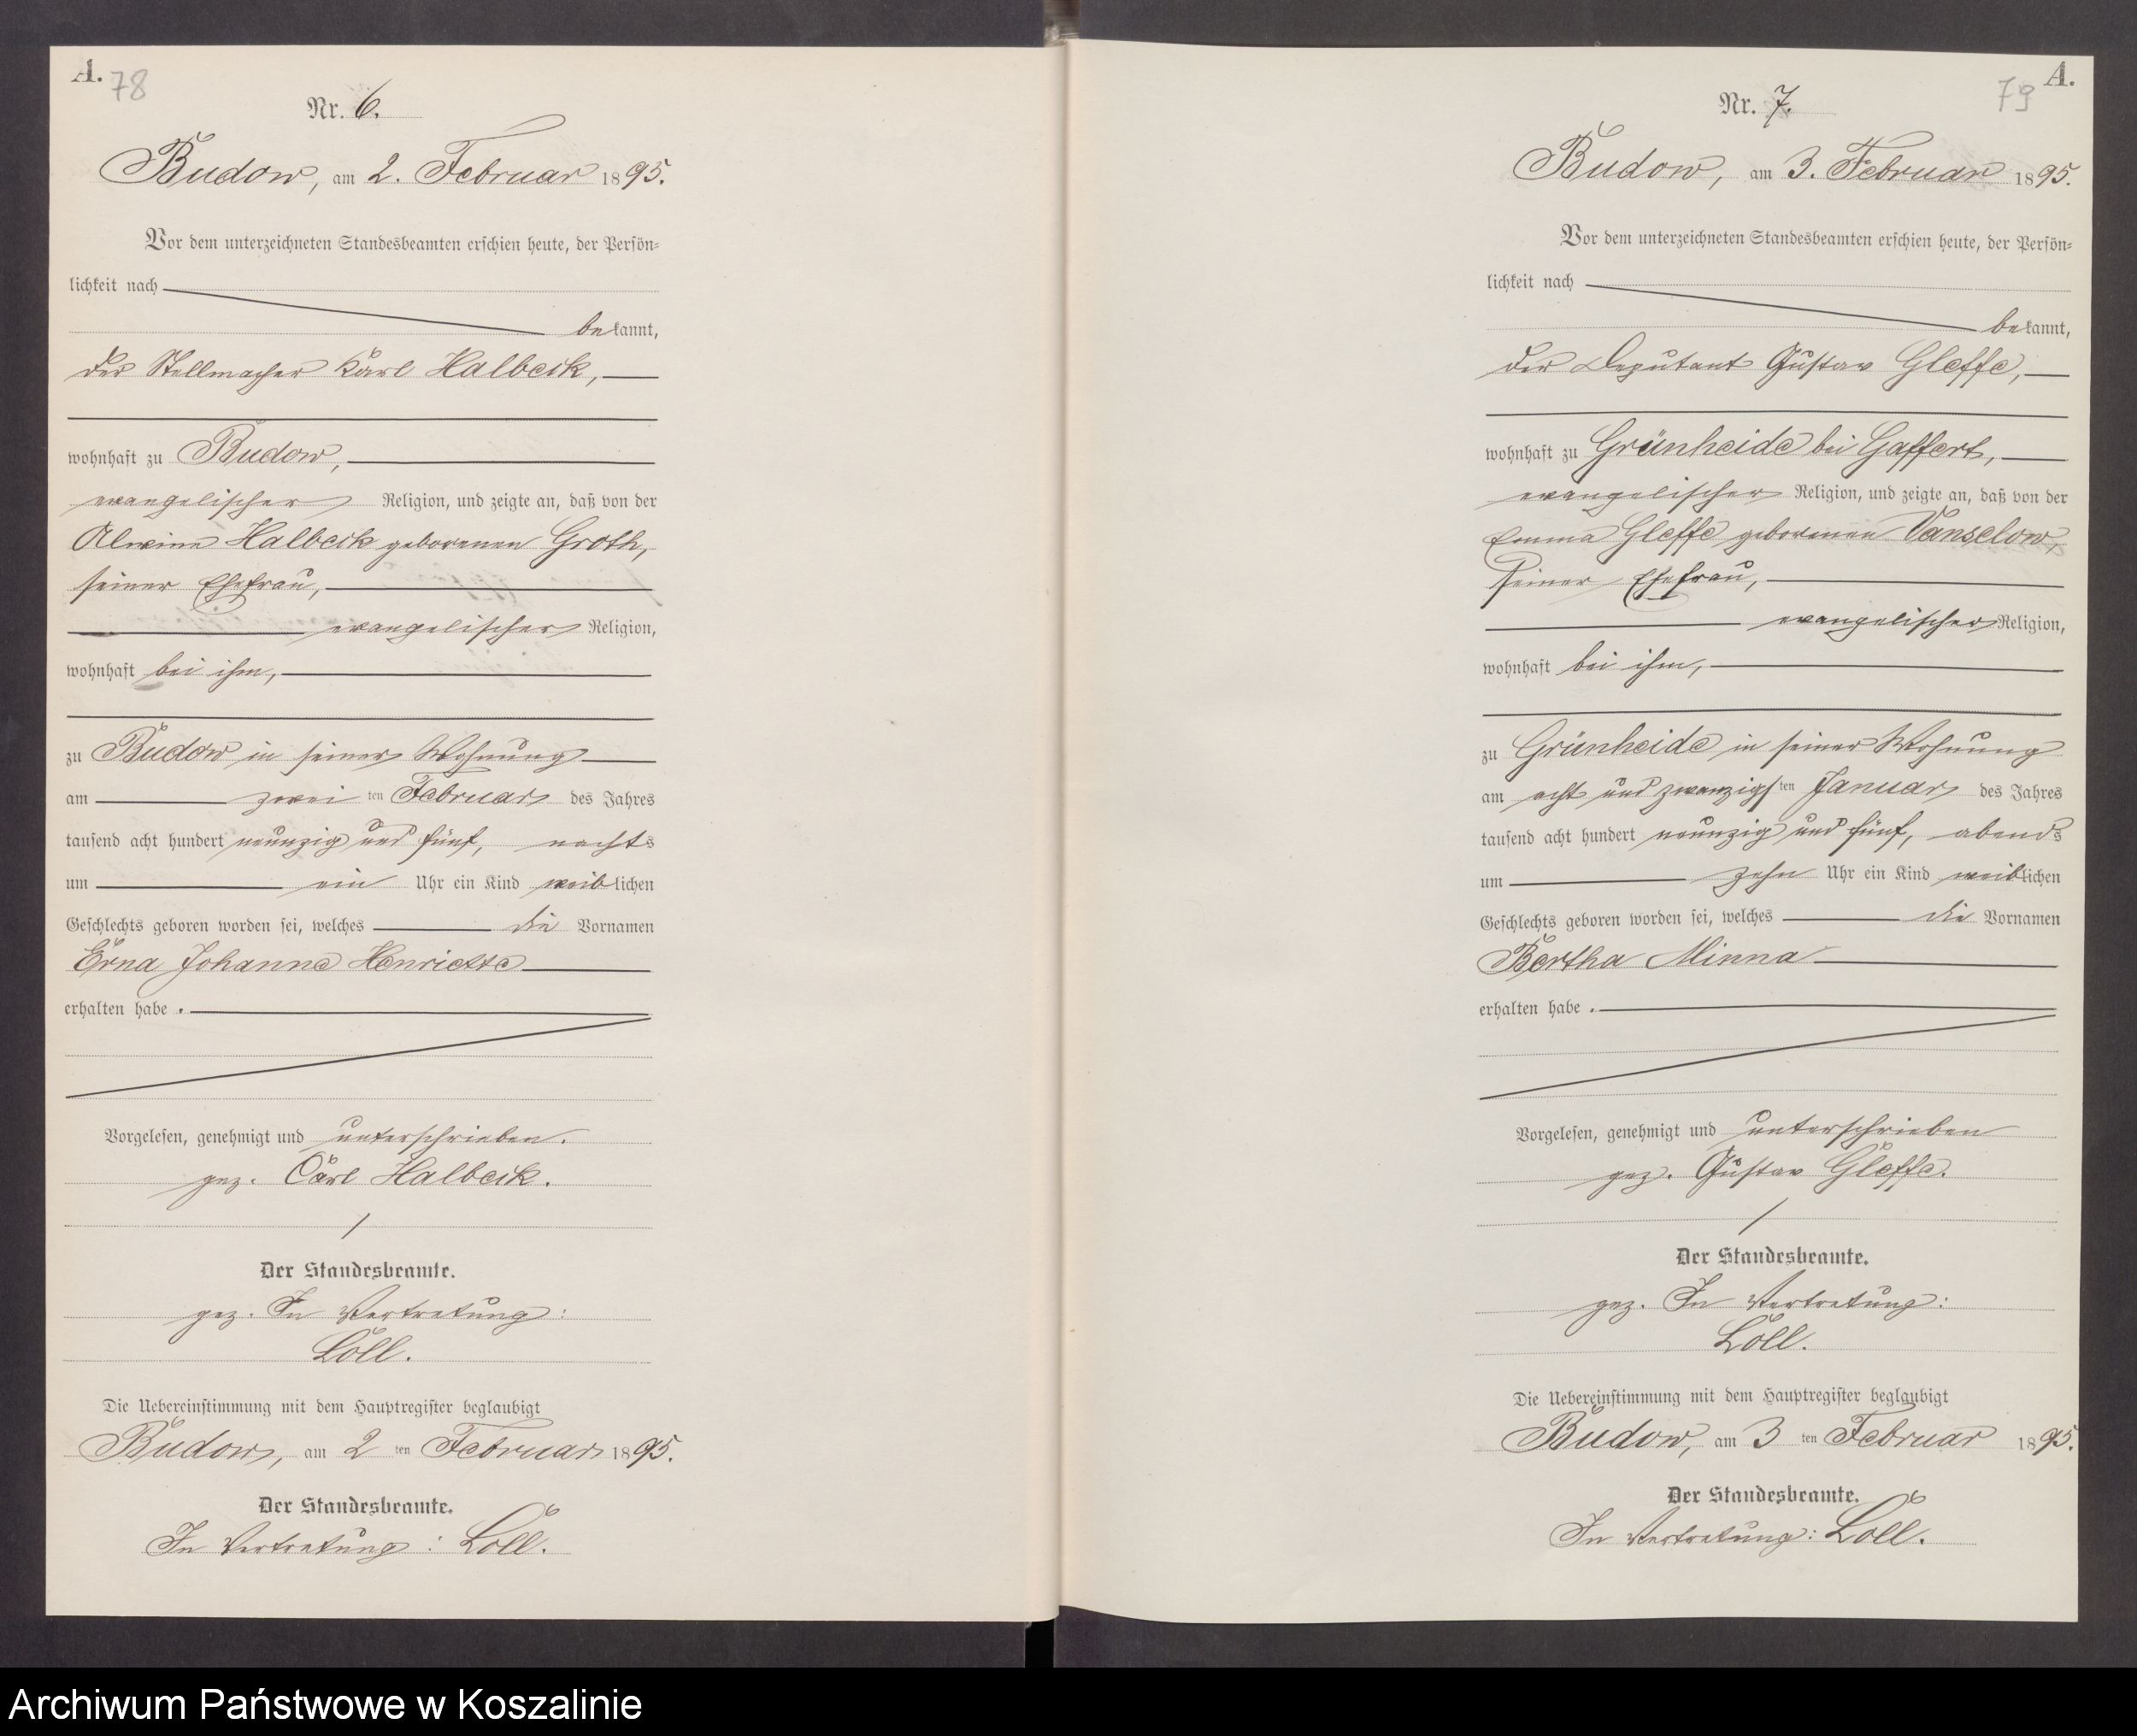 A.
78
Nr. 6.
Budow, am 2. Februar 1895.
Vor dem unterzeichneten Standesbeamten erschien heute, der Persön-
lichkeit nach
bekannt,
der Stellmacher Karl Halbeck,
wohnhaft zu Budow,
evangelischer Religion, und zeigte an, daß von der
Alwine Halbeck geborenen Groth,
seiner Ehefrau,
evangelischer Religion,
wohnhaft bei ihm,
zu Budow in seiner Wohnung
am zweiten Februar des Jahres
tausend acht hundert neunzig und fünf, nachts
um ein Uhr ein Kind weiblichen
Geschlechts geboren worden sei, welches die Vornamen
Erna Johanna Henriette
erhalten habe.
Vorgelesen, genehmigt und unterschrieben.
gez. Carl Halbeck.
Der Standesbeamte.
gez. In Vertretung:
Loll.
Die Uebereinstimmung mit dem Hauptregister beglaubigt
Budow, am 2ten Februar 1895.
Der Standesbeamte.
In Vertretung: Loll.
A.
79
Nr. 7.
Budow, am 3. Februar 1895.
Vor dem unterzeichneten Standesbeamten erschien heute, der Persön-
lichkeit nach
bekannt,
der Deputant Gustav Gleffe,
wohnhaft zu Grünheide bei Gaffert,
evangelischer Religion, und zeigte an, daß von der
Emma Gleffe geborenen Vanselow,
seiner Ehefrau,
evangelischer Religion,
wohnhaft bei ihm,
zu Grünheide in seiner Wohnung
am acht und zwanzigsten Januar des Jahres
tausend acht hundert neunzig und fünf, abends
um zehn Uhr ein Kind weiblichen
Geschlechts geboren worden sei, welches die Vornamen
Bertha Minna
erhalten habe.
Vorgelesen, genehmigt und unterschrieben
gez. Gustav Gleffe.
Der Standesbeamte.
gez. In Vertretung:
Loll.
Die Uebereinstimmung mit dem Hauptregister beglaubigt
Budow, am 3ten Februar 1895.
Der Standesbeamte.
In Vertretung: Loll.
Archiwum Państwowe w Koszalinie